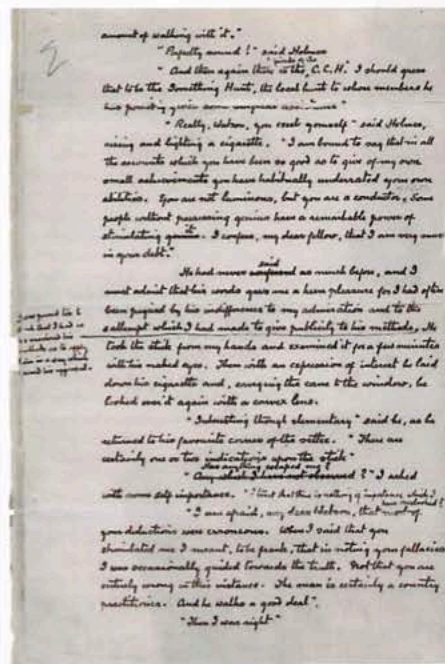 2
amount of walking with it."
"Perfectly sound!" said Holmes
"And then again there is the, friends of the C. C. H. I should guess
that to be the Something Hunt, the local hunt to whose members he
has possibly given some surgical assistance"
"Really, Watson, you excel yourself" said Holmes,
rising and lighting a cigarette. "I am bound to say that in all
the accounts which you have been so good as to give of my own
small achievements you have habitually underrated your own
abilities. You are not luminous, but you are a conductor. Some
people without possessing genius have a remarkable power of
stimulating it. I confess, my dear fellow, that I am very much
in your debt."
said
He had never as much before, and I
must admit that his words gave me a keen pleasure for I had often
been piqued by his indifference to my admiration and to the
attempt which I had made to give publicity to his methods. He
I was proud too to
think that I had so
far mastered his
system as to apply
it in a way which
earned his approval.
took the stick from my hands and examined it for a few minutes
with his naked eyes. Then with an expression of interest he laid
down his cigarette and, carrying the cane to the window, he
looked over it again with a convex lens.
"Interesting though elementary" said he, as he
returned to his favourite corner of the settee. "There are
certainly one or two indications upon the stick"
Has anything escaped me?
"Any which I have not observed?" I asked
with some self importance. "I trust that there is nothing of importance which I
have overlooked?"
"I was afraid, my dear Watson, that most of
your deductions were erroneous. When I said that you
stimulated me I meant, to be frank, that in noting your fallacies
I was occasionally guided towards the truth. Not that you are
entirely wrong in this instance. The man is certainly a country
practitioner. And he walks a good deal".
"Then I was right"